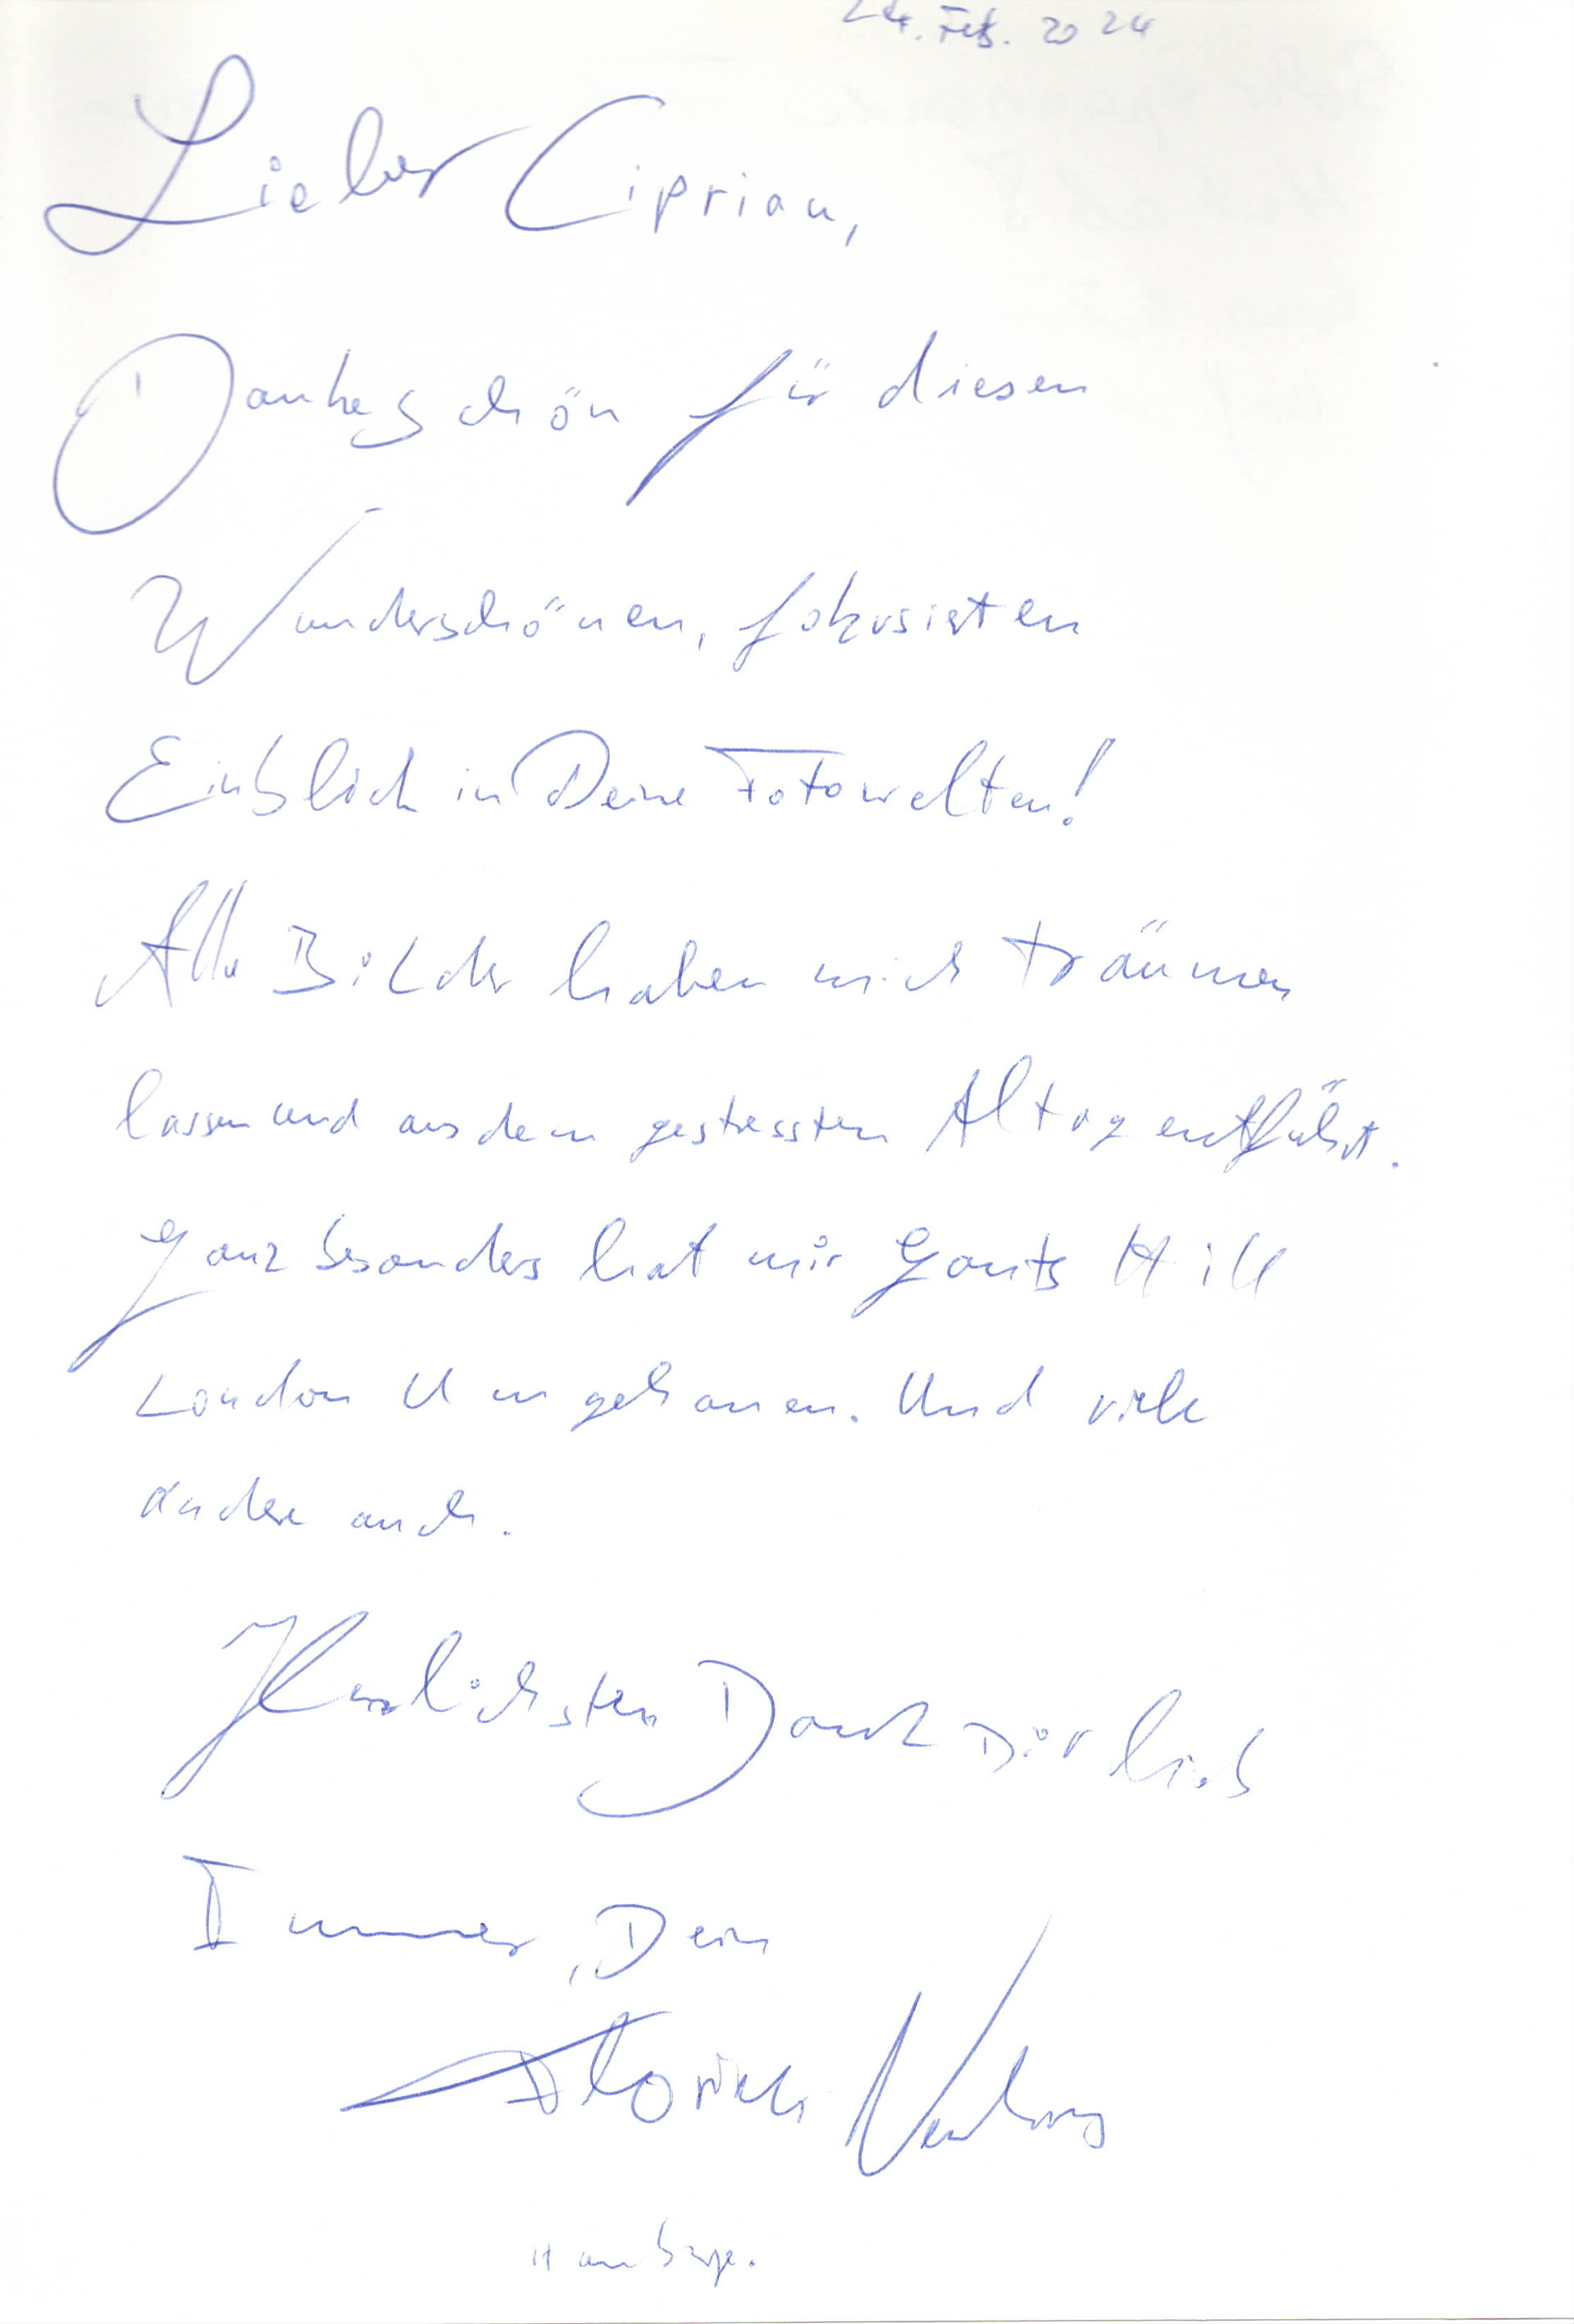 24. Feb. 2024
Lieber Ciprian,
Dankeschön für diesen
Wunderschönen, fokusierten
Einblick in Deine Fotowelten!
Alle Bilder haben mich träumen
lassen und aus dem gestressten Altag entführt.
Ganz besonders hat mir Gants Hill
London Um gehauen. Und viele
andere auch.
Herzlichsten Dank Dir lieb
Immer, Dein